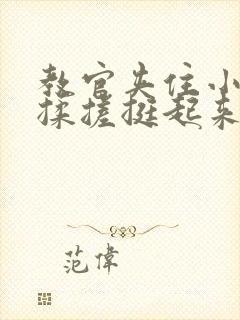 教官夹住小
揉搓挺起来
范偉